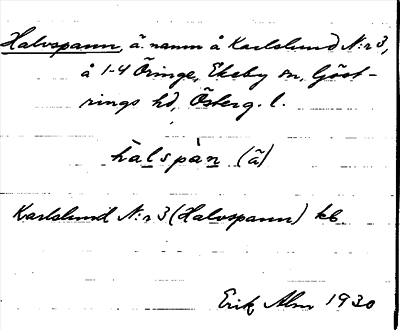 Halvspann, ä. namn å Karlslund N:r 3,
å 1-4 Öringe, Ekeby sn, Göst-
rings hd, Österg. l.
hàlspàn (ã)
Karlslund N:r 3 (Halvspann) kb
Erik Alm 1930